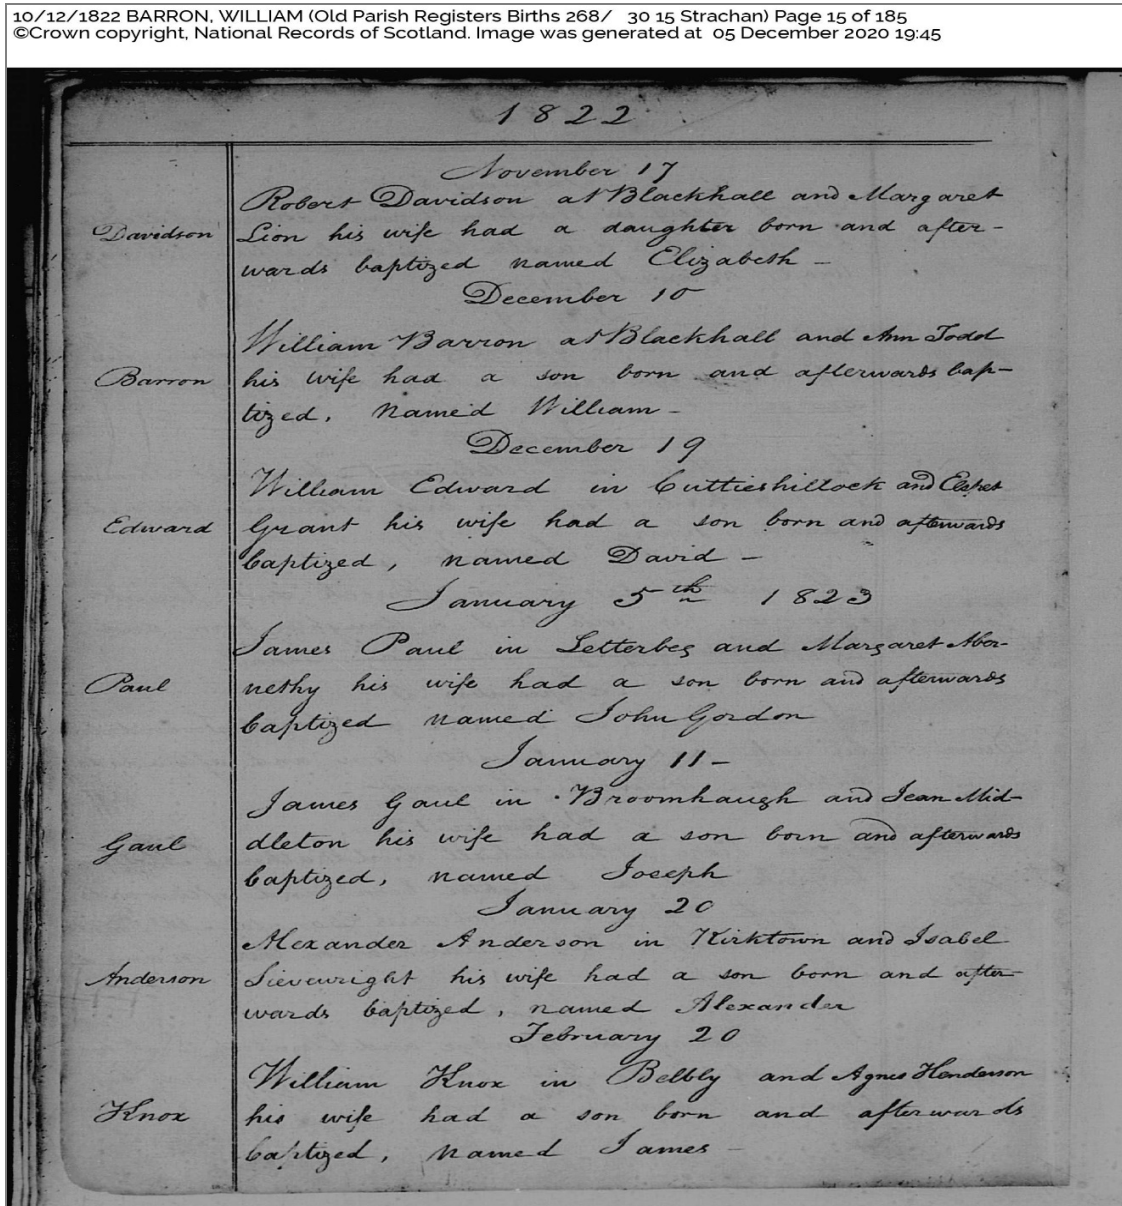 10/12/1822 BARRON, WILLIAM (Old Parish Registers Births 268/ 30 15 Strachan) Page 15 of 185
©Crown copyright, National Records of Scotland. Image was generated at 05 December 2020 19:45
1822
November 17
Robert Davidson at Blackhall and Margaret
Davidson Lion his wife had a daughter born and after-
wards baptized named Elizabeth -
December 10
William Barron at Blackhall and Ann Todd
Barron his wife had a son born and afterwards bap-
tized, named William -
December 19
William Edward in Cuttieshillock and
Edward Grant his wife had a son born and afterwards
baptized, named David -
January 5th 1823
James Paul in Letterbeg and Margaret Aber-
Paul nethy his wife had a son born and afterwards
baptized named John Gordon
January 11 -
James Gaul in Broomhaugh and Jean Mid-
Gaul dleton his wife had a son born and afterwards
baptized, named Joseph
January 20
Alexander Anderson in Kirktown and Isabel
Anderson Sievewright his wife had a son born and after-
wards baptized, named Alexander
February 20
William Knox in and Agnes Henderson
Knox his wife had a son born and afterwards
baptized, named James -